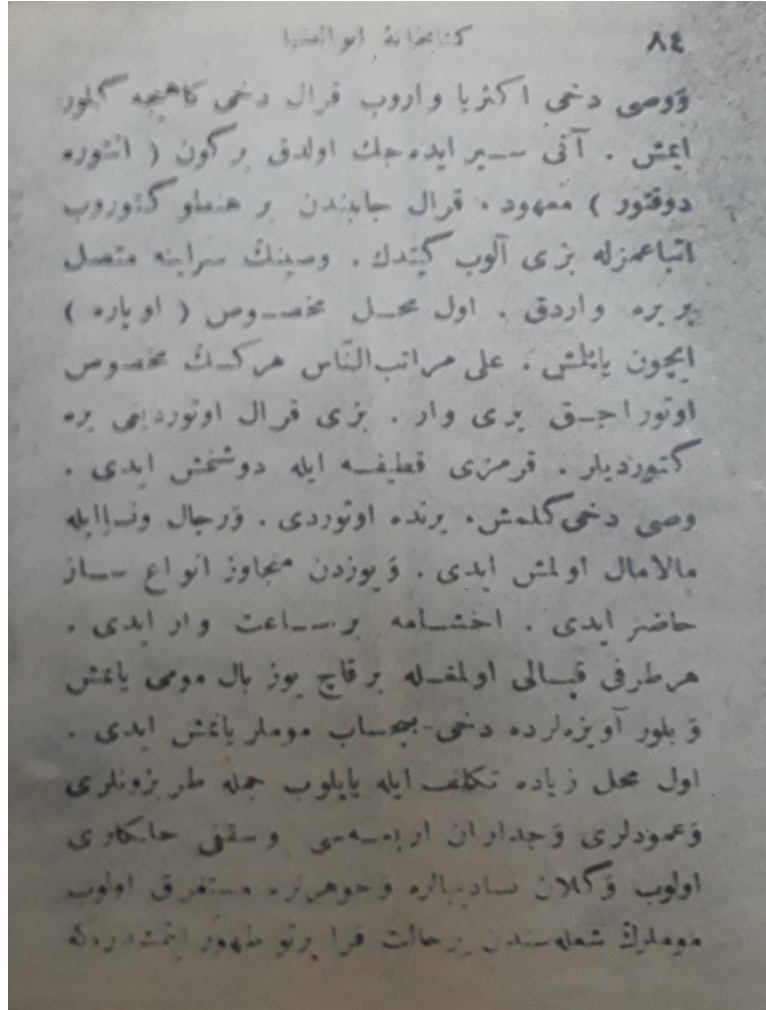 ٨٤ كتابخانهٔ ابوالضيا
ووصى دخى اكثريا واروب قرال دخى كاهيجه گلور
ايمش . آنى ســير ايده‌جك اولدق بر كون ( انتوره
دوقتور ) معهود ، قرال جانبندن بر هنطو كتوروب
اتباعمزله بزى آلوب گيتدك . وصينك سراينه متصل
بر يره واردق . اول محــل مخصــوص ( اوپاره )
ايچون ياپلمش . على مراتب‌النّاس هركسك مخصوص
اوتوراجــق يرى وار . بزى قرال اوتورديغى يره
كتورديلر . قرمزى قطيفــه ايله دوشنمش ايدى .
وصى دخى گلمش، يرنده اوتوردى . ورجال ونسا ايله
مالامال اولمش ايدى . ويوزدن متجاوز انواع ســاز
حاضر ايدى . اخشــامه بر ســاعت وار ايدى .
هر طرفى قپــالى اولمغــله بر قاچ يوز بال مومى يانمش
و بلور آويزه‌لرده دخى بيحساب موملر يانمش ايدى .
اول محل زياده تكلف ايله ياپلوب جمله طربزونلرى
وعمودلرى وجداران اربعــه‌سى وسقفى حلكارى
اولوب وگلان ديبالره وجوهرلره مستغرق اولوب
موملرك شعله‌سندن بر حالت فزا پرتو ظهور ايتمشدر كه